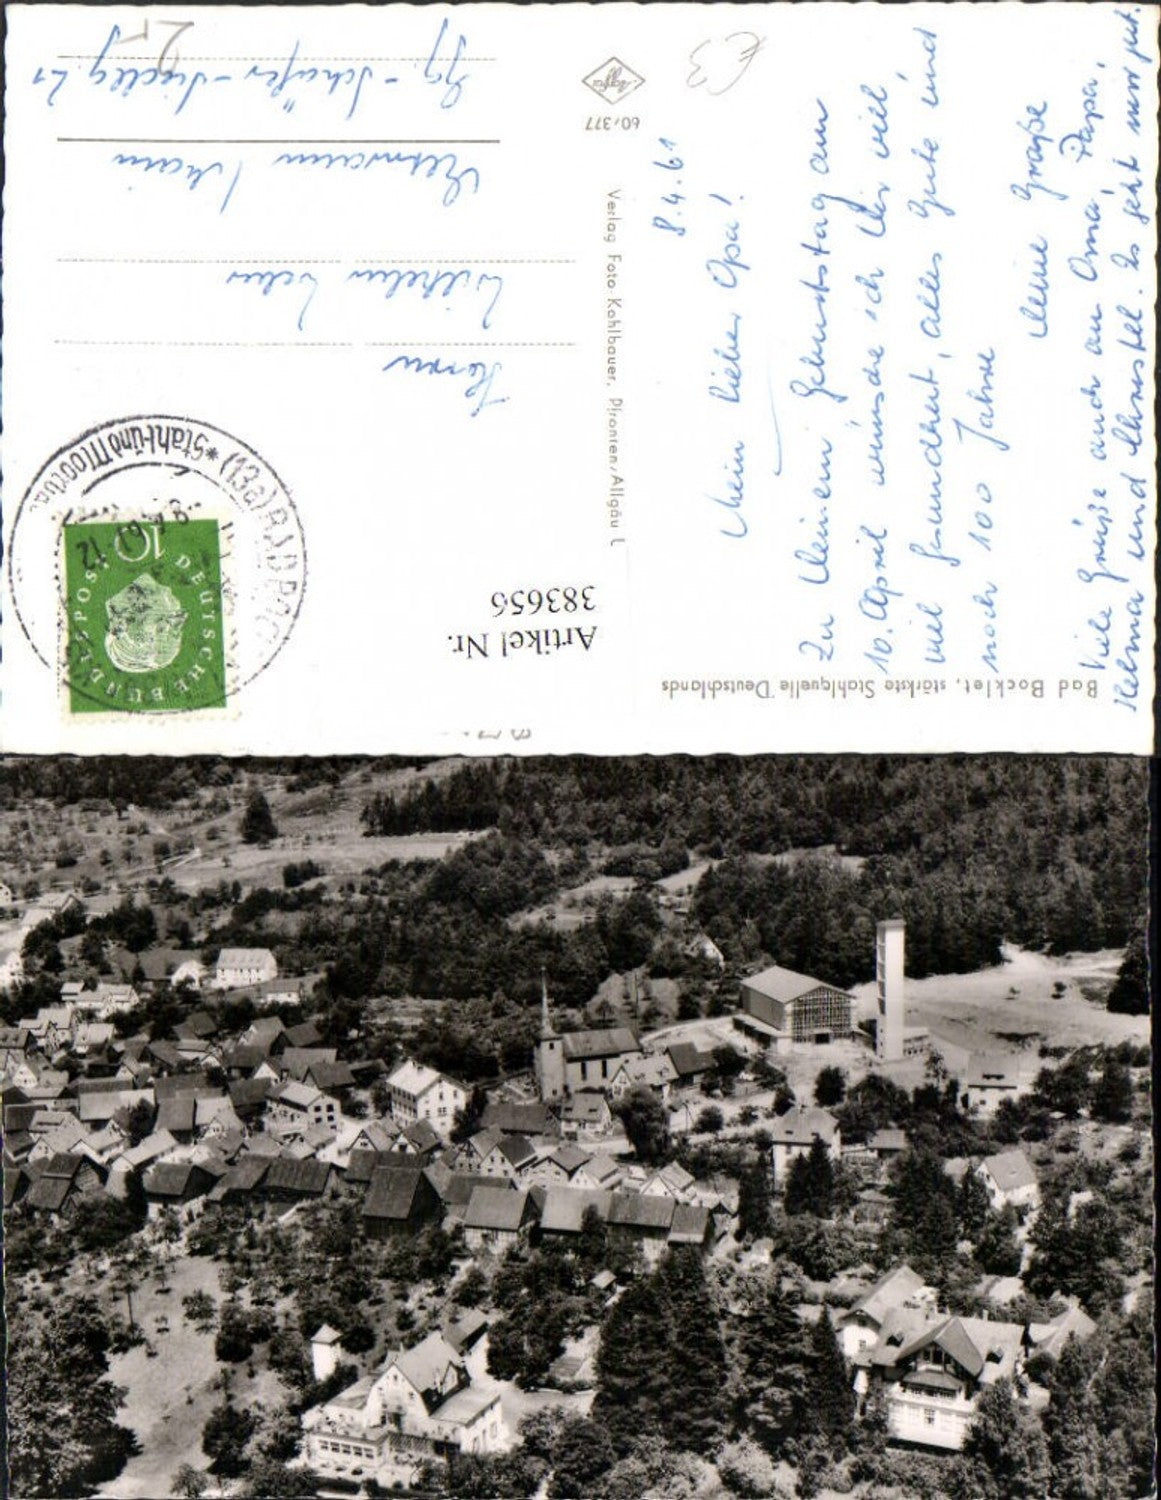 Bad Bocklet, stärkste Stahlquelle Deutschlands
8.4.61
Mein lieber Opa!
Zu Deinem Geburtstag am
10. April wünsche ich Dir viel
viel Gesundheit, alles Gute und
noch 100 Jahre
Deine Grape
Viele Grüße auch an Oma, Papa,
Helma und Christel. Es geht mir gut.
€3
Verlag Foto Kohlbauer, Pfronten/Allgäu L
60/377
Agfa
Artikel Nr.
383656
DEUTSCHE BUNDESPOST
10
(13a) BAD BOC
*Stahl- und Moorba
Herrn
Wilhelm
Main